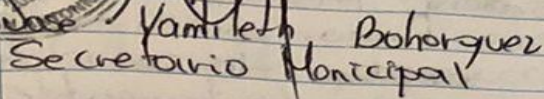 Jose Yamileth Bohorquez
Secretario Monicipal